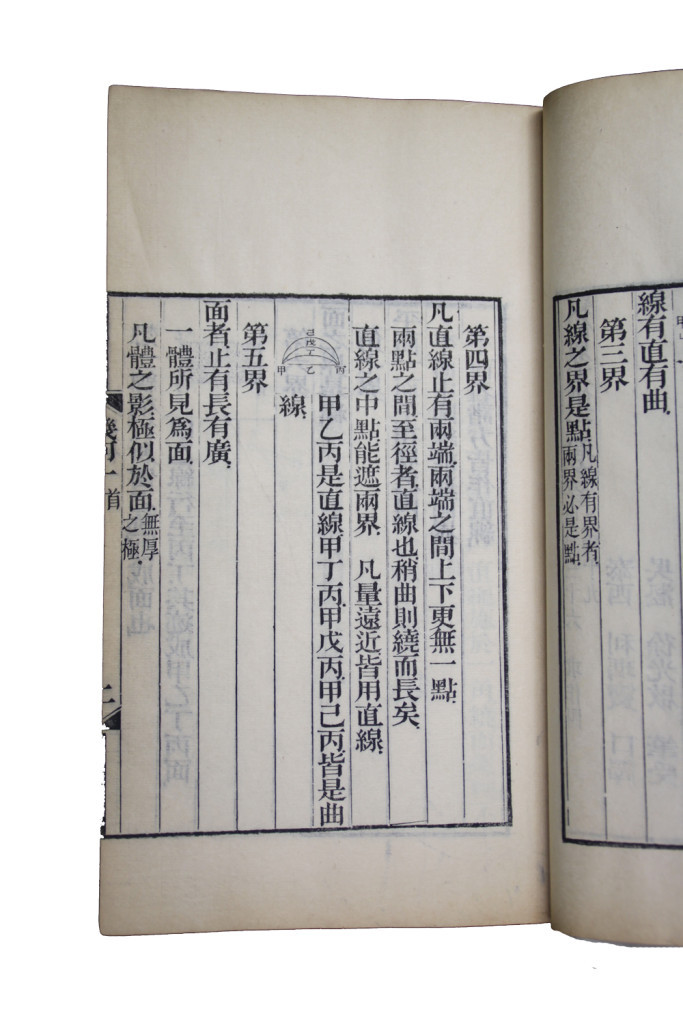 線有直有曲
第三界
凡線之界是點凡線有界者兩界必是點
第四界
凡直線止有兩端兩端之間上下更無一點
兩點之間至徑者直線也稍曲則繞而長矣
直線之中點能遮兩界 凡量遠近皆用直線
甲乙丙是直線甲丁丙甲戊丙甲己丙皆是曲
線
己
戊
丁
丙 乙 甲
第五界
面者止有長有廣
一體所見為面
凡體之影極似於面無厚之極
幾何一首
二